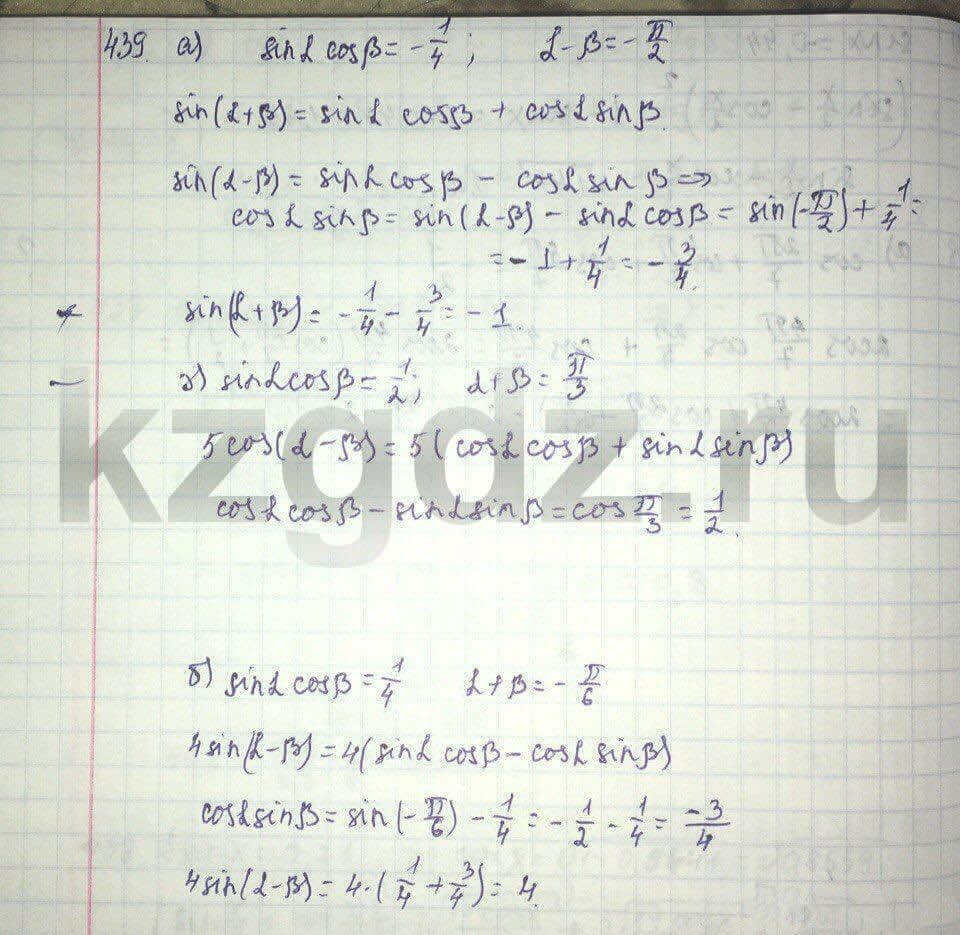 439. а) sinα cosβ = -1/4; α-β = -π/2
sin(α+β) = sinα cosβ + cosα sinβ.
sin(α-β) = sinα cosβ - cosα sinβ ⇒
cosα sinβ = sin(α-β) - sinα cosβ = sin(-π/2) + 1/4 =
= -1 + 1/4 = -3/4.
sin(α+β) = -1/4 - 3/4 = -1.
г) sinα cosβ = 1/2; α+β = π/3
5cos(α-β) = 5(cosα cosβ + sinα sinβ)
cosα cosβ - sinα sinβ = cos π/3 = 1/2.
kzgdz.ru
б) sinα cosβ = 1/4 α+β = -π/6
4sin(α-β) = 4(sinα cosβ - cosα sinβ)
cosα sinβ = sin(-π/6) - 1/4 = -1/2 - 1/4 = -3/4
4sin(α-β) = 4·(1/4 + 3/4) = 4.